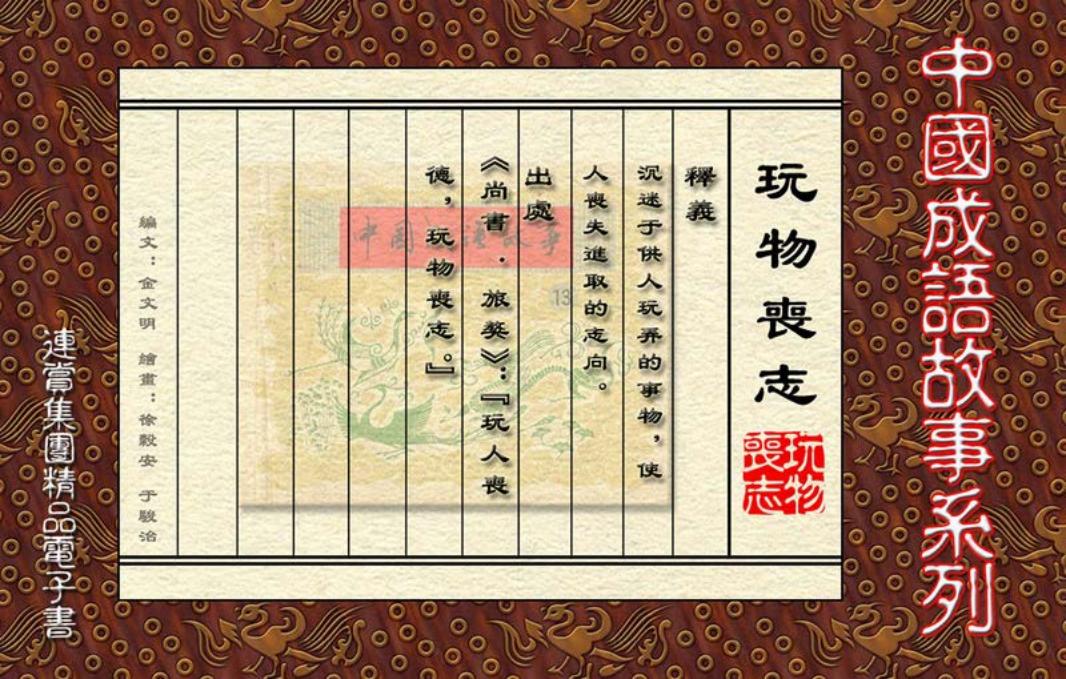 中國成語故事系列
玩物喪志
玩物喪志
釋義
沉迷于供人玩弄的事物，使
人喪失進取的志向。
出處
《尚書．旅獒》：『玩人喪
德，玩物喪志。』
13
編文：金文明 繪畫：徐毅安 于駿治
連賞集團精品電子書